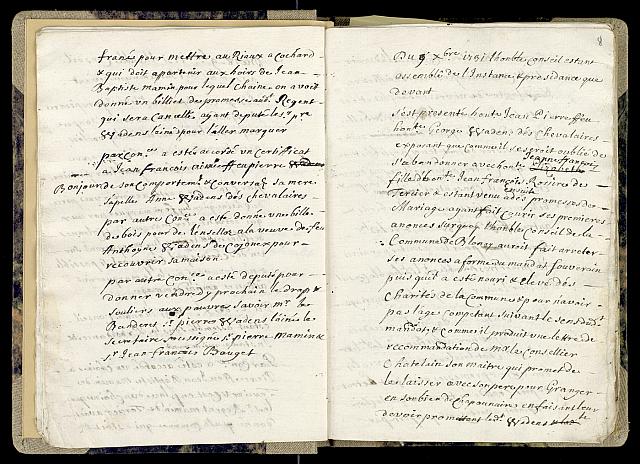 franes pour mettre au Rioux a Cochard
& qui doit apartenir aux hoirs de Jean
Baptiste mamin pour lequel Chaine on a voit
donné un billiet des promesse aud.t Regent
qui sera Cancellé ayant deputé les.r pre
Wadens lainé pour l'aller marquer
par con.ce a estés acordé un Certificat
a Jean francois aimé ffeu pierre
Bonjour de son Comportem.t & Convers.on sa mere
sapelle Anne Wadens des Chevalaires
par autre Con.ce a esté donné un bille
de bois pour de lensellos a la veuve de feu
Anthoyne Wadens de Cojonex pour
recouvrir sa maison
par autre Con.ce a esté deputé pour
donner vendredy prochain le drap &
souliers aux pauvres savoir m.r le
Banderet S.r pierre Wadens lainé le
secretaire mussigne S.r pierre mamin &
S.r Jean francois Bouget
8
Du 9 x.bre 1751 l'honble Conseil estant
assemblé de l'Instance & presidance que
devant
s'est presenté honte Jean Pierre ffeu
hon.te George Wadens des Chevalaires
exposant que comme il s'es troit oublié de
s'abandonner avec honte Jeanne francoise
fille d'hon.te Jean francois Rosiere de
Tercier & estant venu a des promesses de
ensuite
Mariage ayant fait Courir ses premieres
anonces surquoy l'honble Conseil de la
Commune de Blonay auroit fait arreter
ses anonces a forme du mandat souverain
puis qu'il a esté nouri & elevé des
Charités de la Commune & pour n'avoir
pas l'age Competent suivant le sens dud.t
mandat, & Comme il produit une lettre de
recommandation de m.r le Conseiller
Chatelain son maitre qui promet de
le laisser avec son pere pour Granger
en son bien de Chaponnaire en faisant leur
devoir promettant led.t Wadens